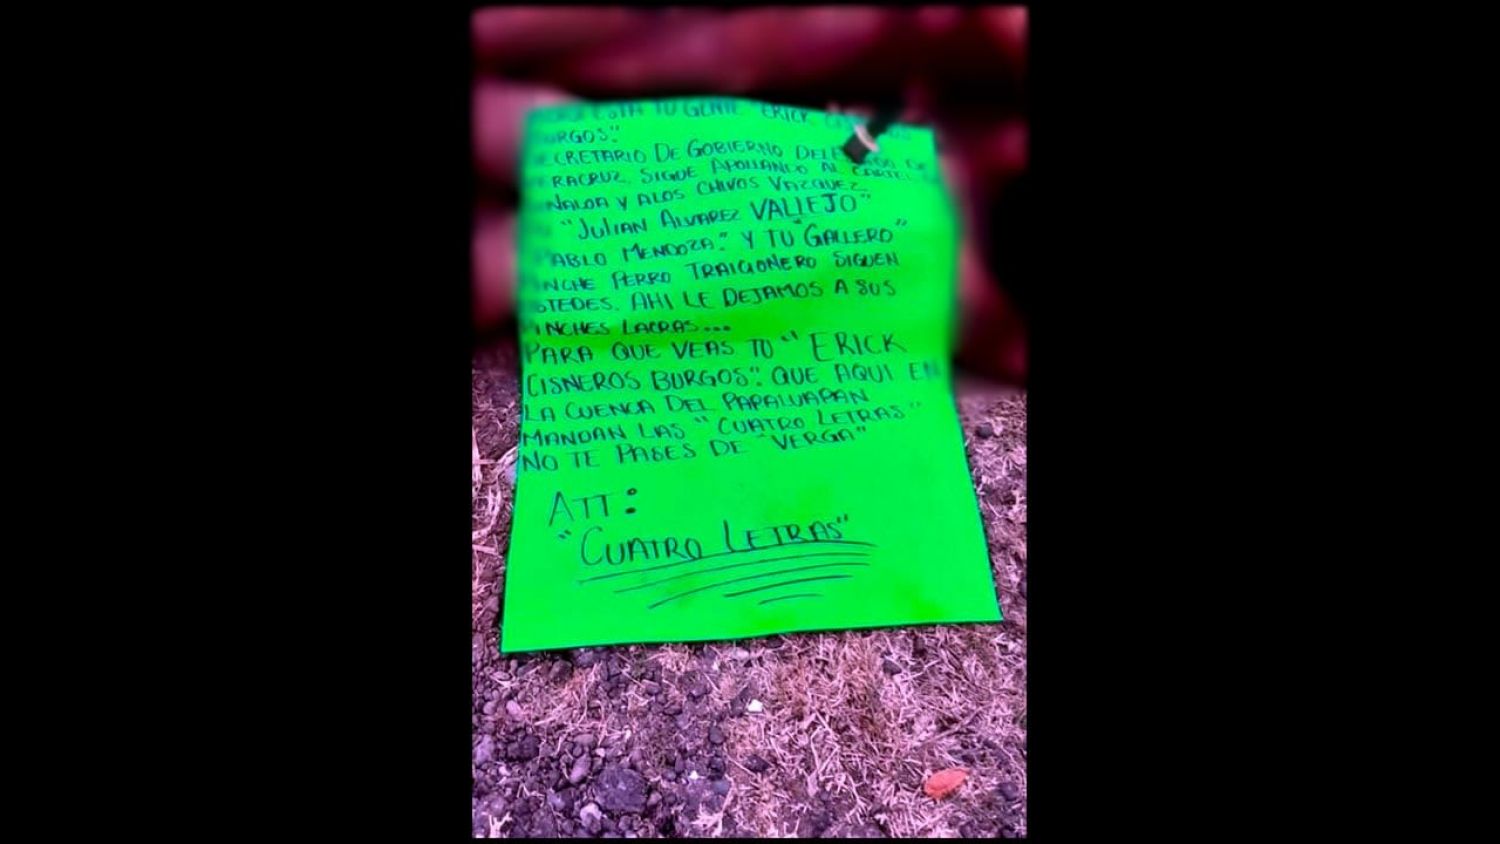 ESTA TU GENTE "ERICK
BURGOS".
SECRETARIO DE GOBIERNO DE
VERACRUZ. SIGUE APOLLANDO AL CARTEL
SINALOA Y ALOS CHIVOS VAZQUEZ
"JULIAN ALVAREZ VALLEJO"
PABLO MENDOZA." Y TU "GALLERO"
PINCHE PERRO TRAICIONERO SIGUEN
USTEDES. AHI LE DEJAMOS A SUS
PINCHES LACRAS...
PARA QUE VEAS TU "ERICK
CISNEROS BURGOS". QUE AQUI EN
LA CUENCA DEL PAPALUAPAN
MANDAN LAS "CUATRO LETRAS"
NO TE PASES DE "VERGA"
ATT:
"CUATRO LETRAS"